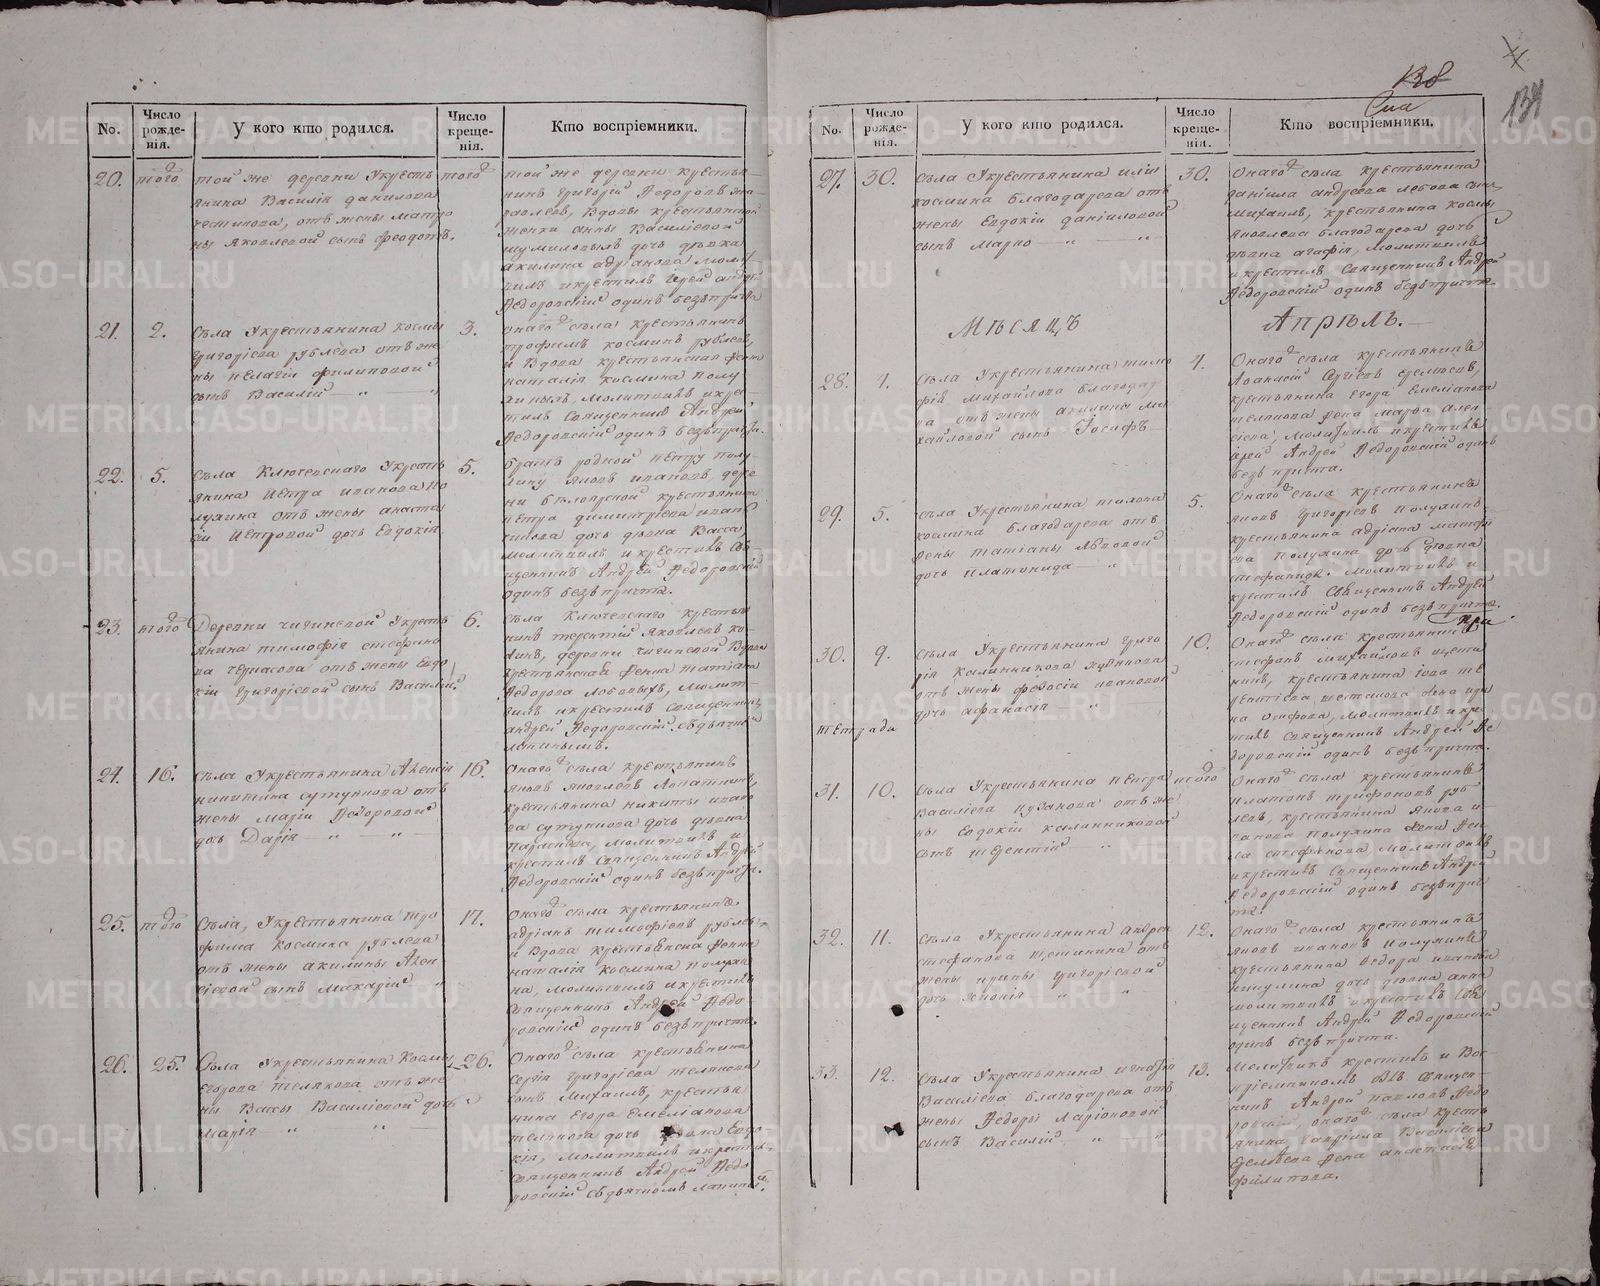 138
Сиа
139
No.
Число рожде-нія.
У кого кто родился.
Число креще-нія.
Кто воспріемники.
20.
того
той же деревни Укресть
янина Василія данилова
отъ жены Матро
ны Яковлевой сынъ Феодотъ.
того
той же деревни крестья
нинъ григорій Ѳедоровъ
вдовы крестьянской
женки анны Василіевой
дочь дѣвка
акилина молит
вилъ и крестилъ Іерей андрей
Ѳедоровскій одинъ безъ причта
21.
2.
Села Укрестьянина космы
григоріева рублева отъ же
ны пелагіи филиповой
сынъ Василій
3.
онаго села крестьянинъ
трофимъ косминъ рублевъ,
и вдова крестьянская жена
наталія космина полу
хиныхъ, молитвилъ и кре
тилъ Священникъ Андрей
Ѳедоровскій одинъ безъ причта.
22.
5.
Села Ключевскаго Укресть
янина Петра иванова По
лухина отъ жены анаста
сіи Петровой дочь Евдокія
5.
братъ родной петру полу
хину яковъ ивановъ, дере
вни бѣлоярской крестьянина
петра димитріева
дочь дѣвка Васса
молитвилъ и крестилъ Свя
щенникъ Андрей Ѳедоровскій
одинъ безъ причта.
23.
того
Деревни чигинской Укресть
янина тимофія стефано
ва черпакова отъ жены Евдо
кіи григоріевой сынъ Василій.
6.
Села Ключевскаго крестья
нинъ терентій Яковлевъ
деревни чигинской вдова
крестьянская жена татіана
Ѳедорова лобовыхъ, молит
вилъ и крестилъ Священникъ
андрей Ѳедоровскій съ дьячкомъ
24.
16.
Села Укрестьянина Алексія
никитина сутункова отъ
жены Маріи Ѳедоровой
дочь Дарія
16.
Онаго села крестьянинъ
яковъ яковлевъ Лопатинъ,
крестьянина никиты ивано
ва сутункова дочь дѣвка
молитвилъ и
крестилъ Священникъ Андрей
Ѳедоровскій одинъ безъ причта.
25.
того
Села, Укрестьянина тро
фима Космина рублева
отъ жены акилины Алек
сіевой сынъ Макарій
17.
Онаго села крестьянинъ.
адріанъ тимофіевъ рублевъ,
и Вдова крестьянска женка
наталія Космина полухи
на, молитвилъ и крестилъ
Священникъ Андрей Ѳедо
ровскій одинъ безъ причта.
26.
25.
Села Укрестьянина Космы
Егорова телякова отъ же
ны Вассы Василіевой дочь
Марія
26.
Онаго села крестьянина
сергія григоріева телякова
сынъ Михаилъ, крестья
нина Егора Емеліанова
телякова дочь дѣвка Евдо
кія, молитвилъ и крестилъ
священникъ Андрей Ѳедо
ровскій съ дьячкомъ Лапинымъ.
No.
Число рожде-нія.
У кого кто родился.
Число креще-нія.
Кто воспріемники.
27.
30.
Села Укрестьянина иліи
космина благодарева отъ
жены Евдокіи даніиловой
сынъ Марко
30.
Онаго села крестьянина
даніила андреева лобова сынъ
михаилъ, крестьянина космы
яковлева благодарева дочь
дѣвка агафія, молитвилъ
и крестилъ Священникъ Андрей
Ѳедоровскій одинъ безъ причта.
Мѣсяцъ Апрѣль.
28.
1.
Села Укрестьянина тимо
фія Михайлова благодар
ва отъ жены акилины ми
хайловой сынъ Іосифъ
4.
Онаго села крестьянинъ
Аѳанасій Сергіевъ
крестьянина Егора Емеліанова
телякова жена Марѳа алек
сіева, молитвилъ и крестилъ
іерей Андрей Ѳедоровскій одинъ
безъ причта.
29.
5.
Села Укрестьянина тихона
космина благодарева отъ
жены татіаны Львовой
дочь платонида
5.
Онаго села крестьянинъ
яковъ григоріевъ полухинъ,
крестьянина адріана матфі
ева полухина дочь дѣвка
стефанида. молитвилъ и
крестилъ Священникъ Андрей
Ѳедоровскій одинъ безъ причта.
при
30.
9.
Села Укрестьянина григо
рія Калинникова
отъ жены феодосіи ивановой
дочь афанасія
10.
Онаго села крестьянинъ
стефанъ Михайловъ щети
нинъ, крестьянина іова те
рентіева шестакова жена ири
на Осифова, молитвилъ и кре
тилъ священникъ Андрей Ѳе
доровскій одинъ безъ причта.
тетради
31.
10.
Села Укрестьянина петра
Василіева отъ же
ны Евдокіи калинниковой
сынъ терентій
того
Онаго села крестьянинъ
платонъ трифоновъ руб
левъ, крестьянина якова и
ванова полухина жена
стефанова молитвилъ
и крестилъ Священникъ Андрей
Ѳедоровскій одинъ безъ прич
та.
32.
11.
Села Укрестьянина андрея
стефанова щетинина отъ
жены ирины григоріевой
дочь
12.
Онаго села крестьянинъ
яковъ ивановъ полухинъ
крестьянина Ѳедора иванова
дочь дѣвка анна
молитвилъ и крестилъ Свя
щенникъ Андрей Ѳедоровскій
одинъ безъ причта.
33.
12.
Села Укрестьянина игнатія
Василіева благодарева отъ
жены Ѳедоры Маріоновой
сынъ Василій
13.
Молитвилъ крестилъ и Вос-
пріемникомъ былъ Священ-
никъ Андрей павловъ Ѳедо
ровскій, онаго села кресть
янина, гавріила Василіева
жена анастасія
филипова.